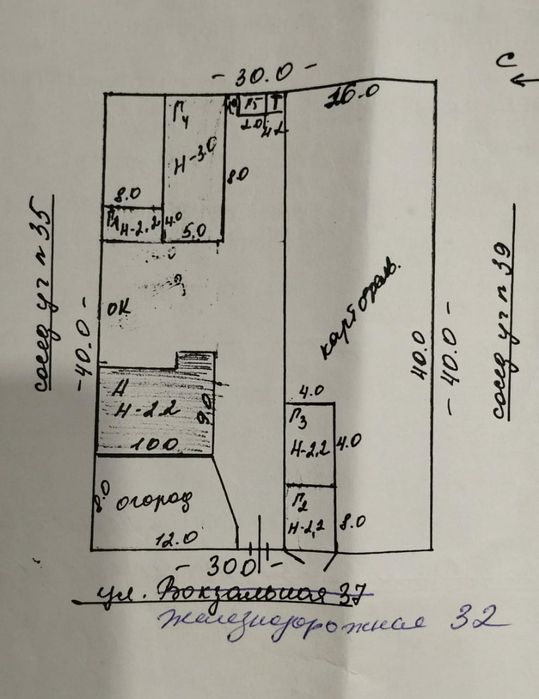 - 30.0 -
С
16.0
Г4
Г5
Т
2.0
Н-3.0
8.0
8.0
Н-2,2
4.0
5.0
сосед уч №35
- 40.0 -
ОК
картофель
40.0
- 40.0 -
сосед уч №39
Н
Н-2,2
9,0
10.0
4.0
Г3
Н-2,2
4.0
Г2
Н-2,2
8.0
8.0
огород
12.0
- 30.0 -
ул. Вокзальная 37
Железнодорожная 32